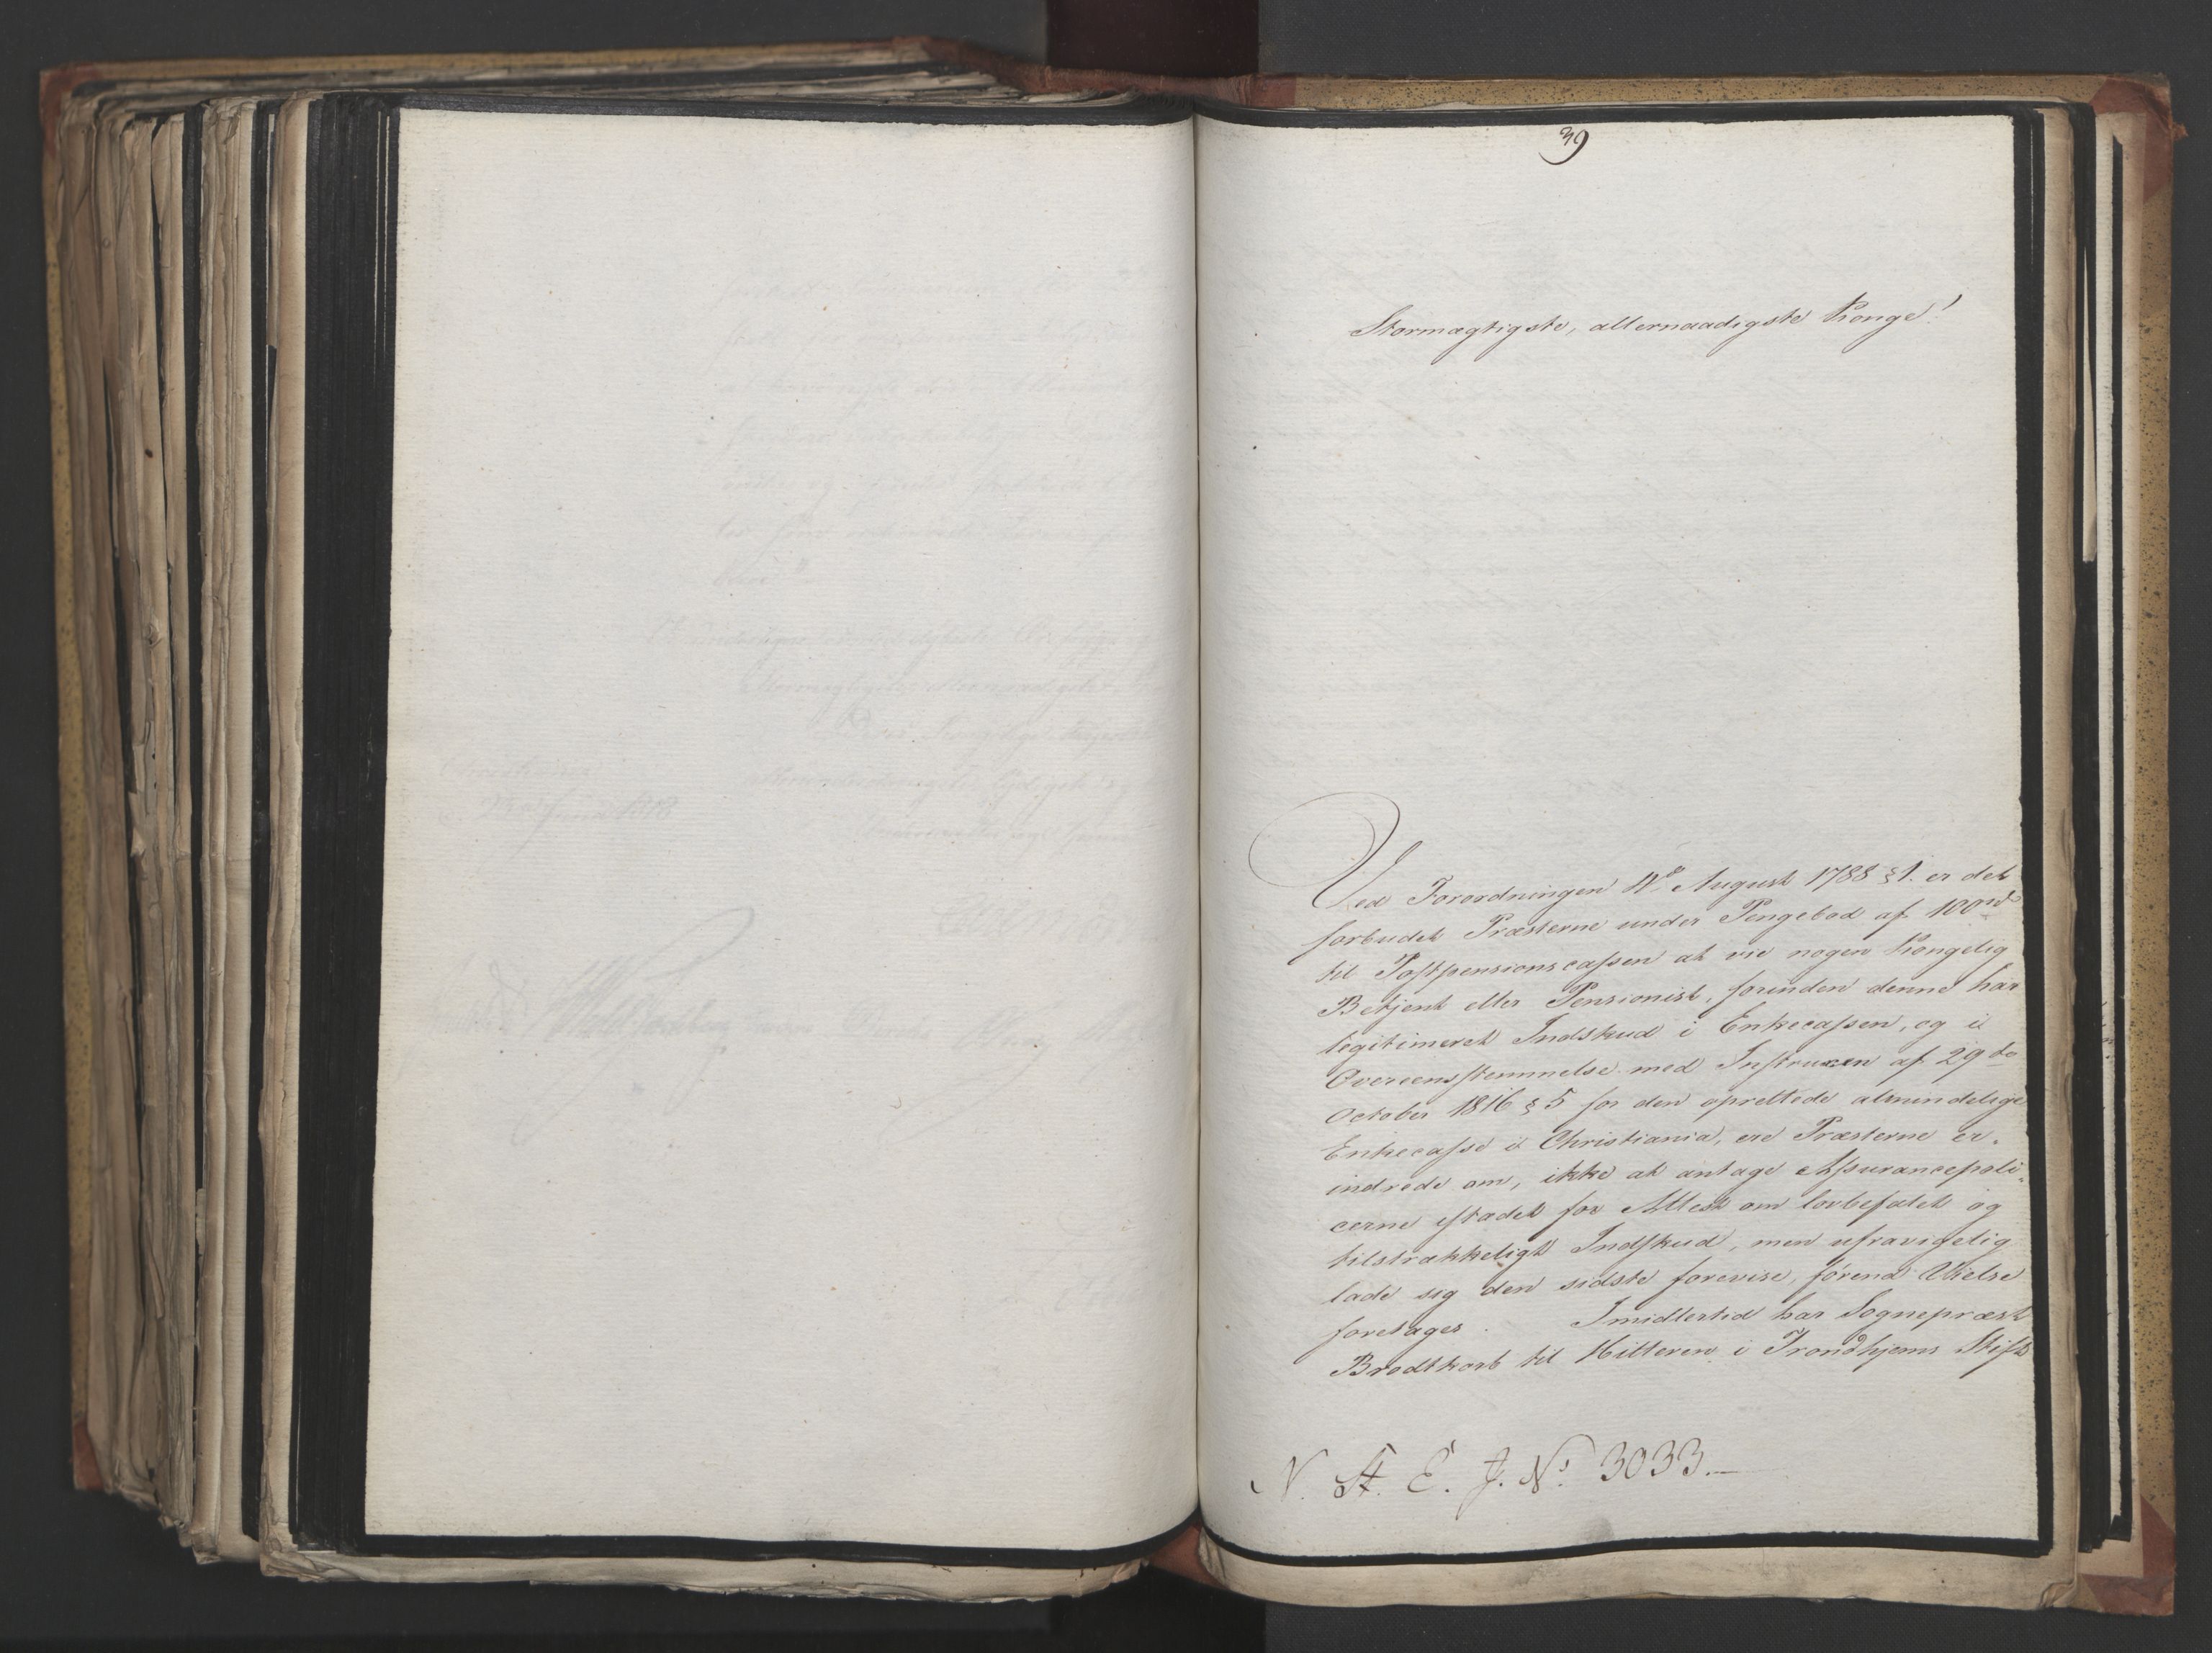 39
Stormægtigste, allernaadigste Konge!
Ved Forordningen 11te August 1788 § 1. er det
forbudet Præsterne under Pengebod af 100rd
til Postpensionscassen at vie nogen Kongelig
Betjent eller Pensionist, forinden denne har
legitimeret Indskud i Enkecassen, og i
Overeensstemmelse med Instruxen af 29de
October 1816 § 5 for den oprettede almindelige
Enkecasse i Christiania, ere Præsterne er-
indrede om, ikke at antage Assurancepoli-
cerne istædet for Attest om lovbefalet og
tilstrækkeligt Indskud, men ufravigelig
lade sig den sidste forevise, førend Vielse
foretages. Imidlertid har Sognepræst
Brodtkorb til Hitteren i Trondhjems Stift
N. St. E. J. No. 3033.